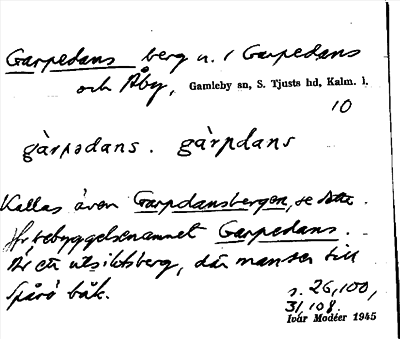 Garpedans berg n. i Garpedans
och Åby, Gamleby sn, S. Tjusts hd, Kalm. l.
10
gàrpədans. gàrpdans
Kallas även Garpdansbergen, se detta.
Jfr bebyggelsenamnet Garpedans.
Är ett utsiktsberg, där man ser till
Spårö båk.
s. 26, 100,
31, 108.
Ivar Modéer 1945